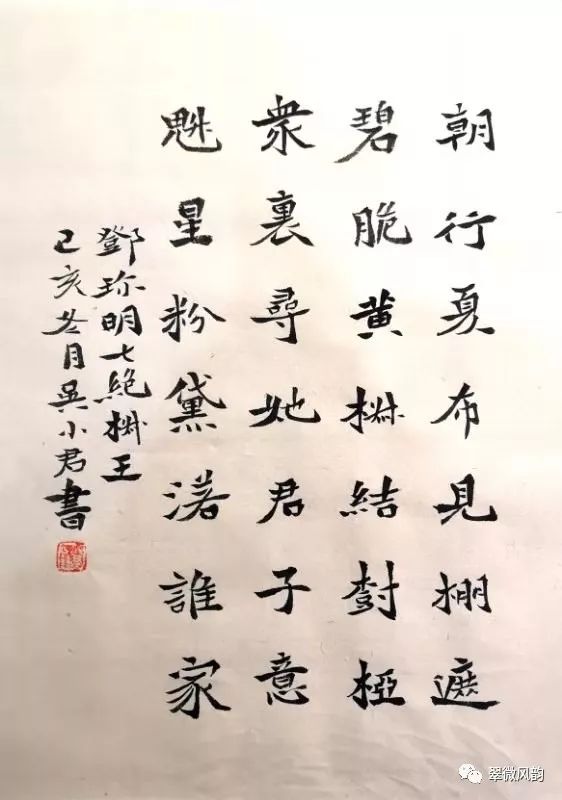 朝行夏布見棚遮
碧脆黃結樹椏
衆裏尋她君子意
魁星粉黛渃誰家
鄧珎明七絕王
己亥冬月吳小君書
翠微风韵